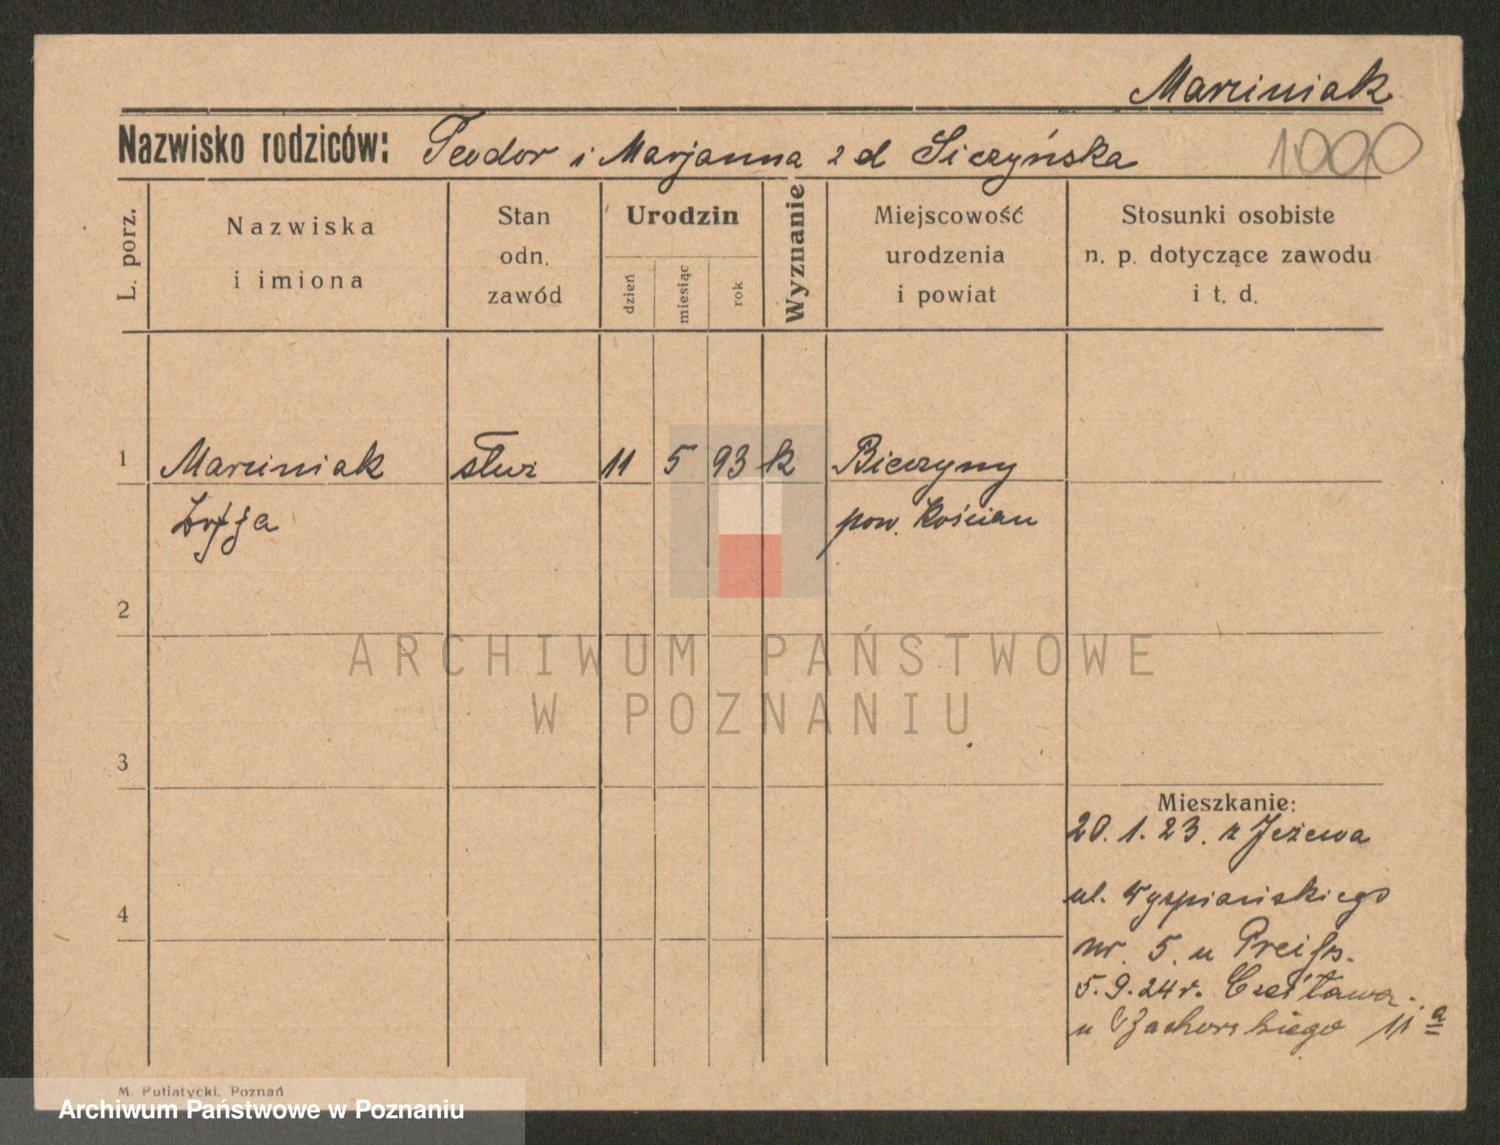 Marciniak
Nazwisko rodziców: Teodor i Marjanna z d Siczyńska
1000
L. porz.
Nazwiska
i imiona
Stan
odn.
zawód
Urodzin
dzień
miesiąc
rok
Wyznanie
Miejscowość
urodzenia
i powiat
Stosunki osobiste
n. p. dotyczące zawodu
i t. d.
1 Marciniak służ 11 5 93 k Bieczyny
Zofja pow. Kościan
2
ARCHIWUM PAŃSTWOWE
W POZNANIU
3
Mieszkanie:
20. 1. 23. z Jeżewa
4
ul. Wyspiańskiego
nr. 5. u Preiss.
5. 9. 24 r. Czesława
u Zachorskiego 11 a
M. Putiatycki, Poznań
Archiwum Państwowe w Poznaniu